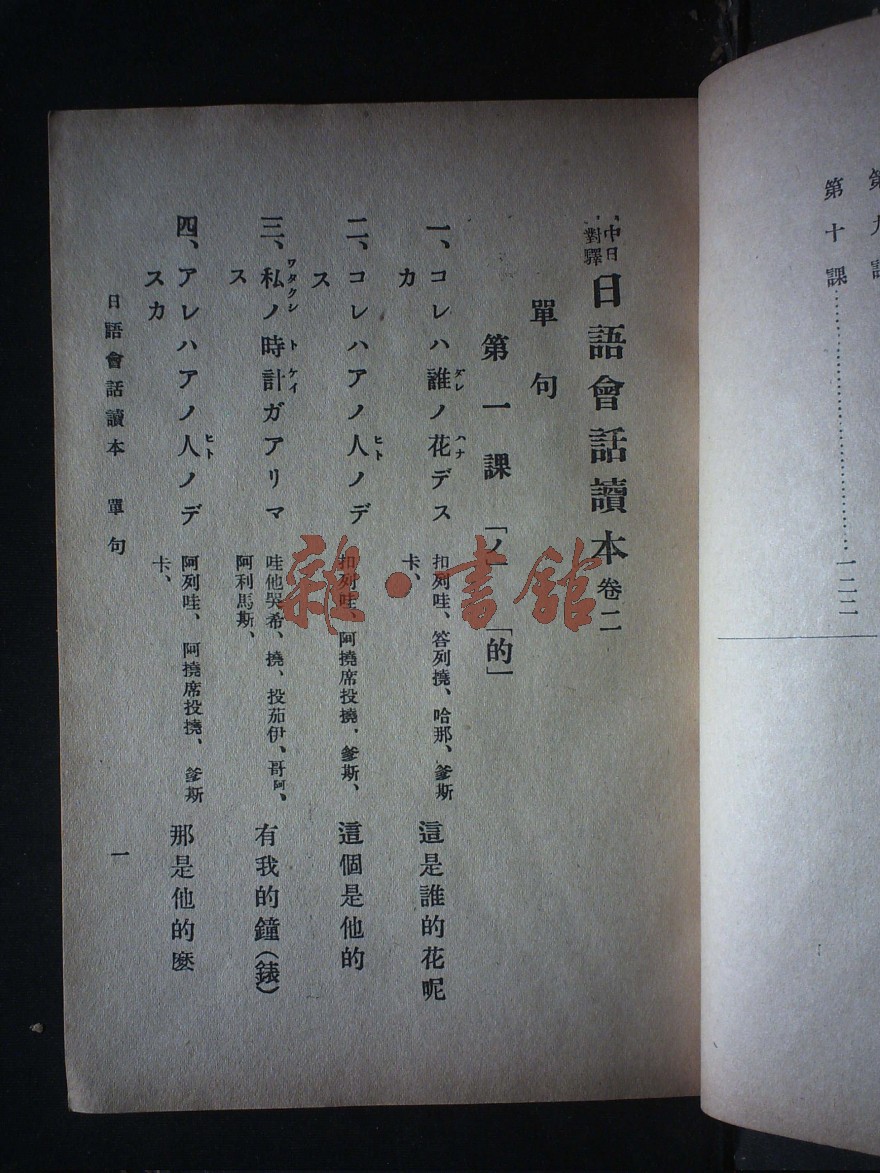 第九課
第十課……………………一二二
中日對譯 日語會話讀本 卷二
單句
第一課 「ノ」「的」
一、コレハ誰ノ花デス
ダレ ハナ
カ
扣列哇、答列撓、哈那、爹斯
卡、
這是誰的花呢
二、コレハアノ人ノデ
ヒト
ス
扣列哇、阿撓席投撓、爹斯、
這個是他的
三、私ノ時計ガアリマ
ワタクシ トケイ
ス
哇他吳希、撓、投茄伊、哥阿、
阿利馬斯、
有我的鐘(錶)
四、アレハアノ人ノデ
ヒト
スカ
阿列哇、阿撓席投撓、爹斯
卡、
那是他的麽
日語會話讀本 單句
一
雜·書館